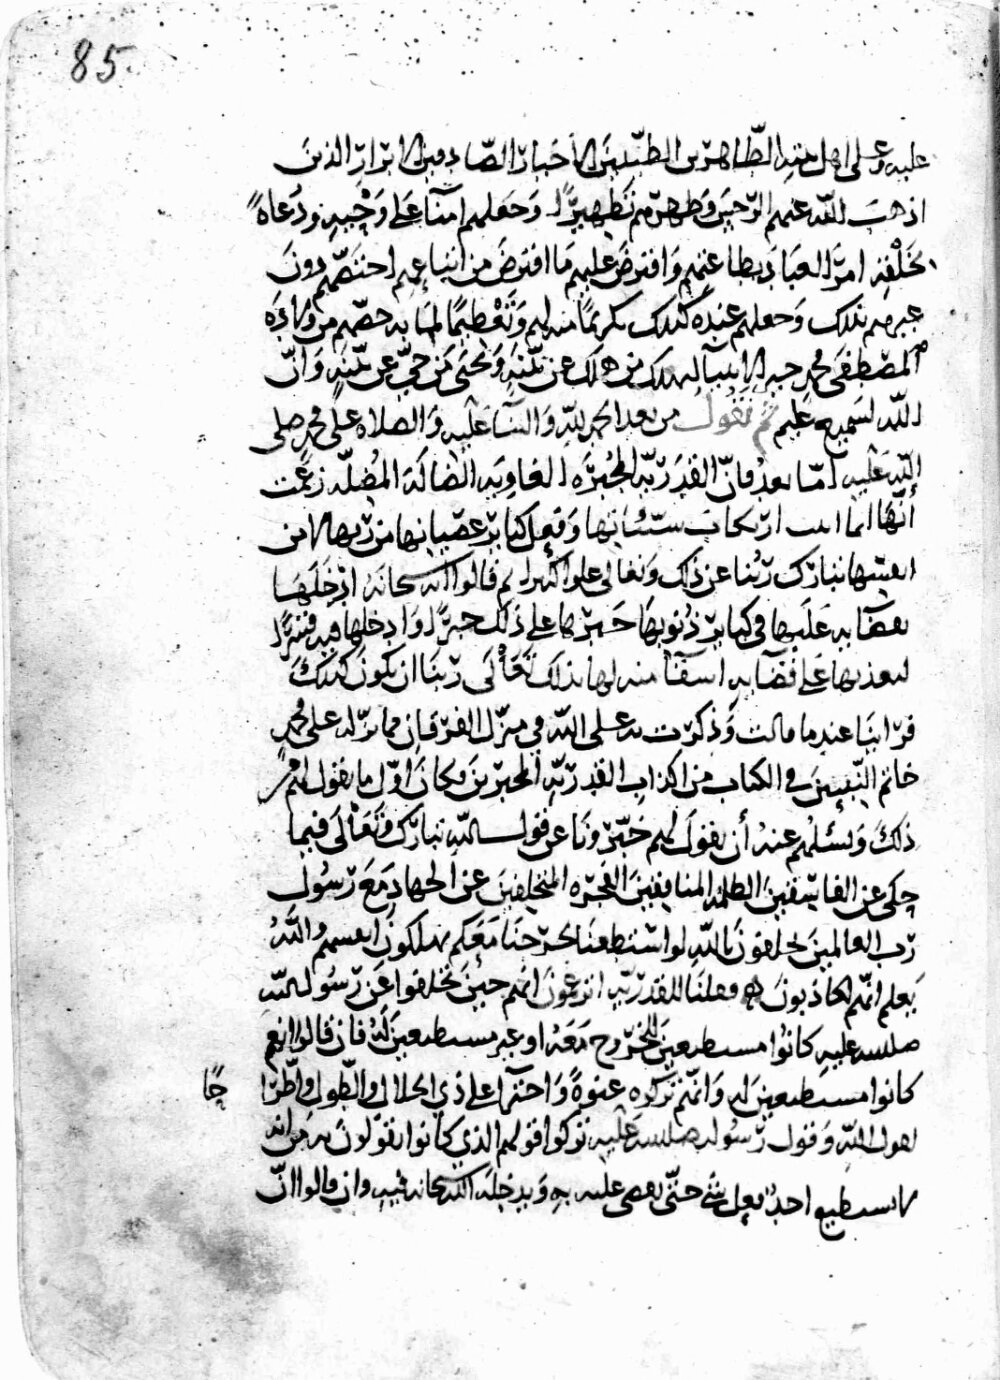 85
عليه وعلى اهل بيته الطاهرين الطيبين الاخيار الصادقين الابرار الذين
اذهب الله عنهم الرجس وطهرهم تطهيرا وجعلهم امنآ على وحيه ودعاةً
لخلقه امر العباد بطاعتهم وافترض عليهم ما افترض من انبيائهم اختصهم دون
غيرهم بذلك وجعلهم عنده كذلك تكريمًا منه لهم وتعظيمًا لما به خصهم من ولادة
المصطفى محمد خير الانبيآ ليهلك من هلك عن بينة ويحيى من حي عن بينة وان
الله لسميع عليم ثم نقول من بعد الحمد لله والثنآ عليه والصلاة على محمد صلى
الله عليه امّا بعد فان القدرية المجبرة الغاوية الضالة المضلة زعمت
أنها انما اتت ارتكاب سيئاتها وفعل كبائر عصيانها من ربها لا من
انفسها تبارك ربنا عن ذلك وتعالى علوا كبيرا ثم قالوا انه سبحانه ادخلها
بقضايه عليها في كبائر ذنوبها جبرها على ذلك جبرًا وادخلها فيه قسرًا
ليعذبها على قضآيه اسقآ منه لها بذلك تعالى ربنا ان يكون كذلك
فراينا عندما قالت وذكرت به على الله في منزل الفرقان مما نزله على محمد
خاتم النبيين في الكتاب من اكذاب القدرية المجبرين فكان اول ما نقول لهم في
ذلك ونسئلهم عنه أن نقول لهم خبرونا عن قول الله تبارك وتعالى فيما
حكى عن الفاسقين الظلمة المنافقين الفجرة المتخلفين عن الجهاد مع رسول
رب العالمين يحلفون بالله لو استطعنا لخرجنا معكم يهلكون انفسهم والله
يعلم انهم لكاذبون فقلنا للقدرية اتزعمون انهم حين تخلفوا عن رسول الله
صلى الله عليه كانوا مستطيعين للخروج معه او غير مستطيعين له فان قالوا انهم
كانوا مستطيعين له وانهم تركوه عنوةً واجترآ على ذي الجلال والطول واطراحًا
لقول الله وقول رسوله صلى الله عليه تركوا قولهم الذي كانوا يقولون به من انه
لا يستطيع احد فعل شي حتى يقضى عليه به ويدخله الله سبحانه فيه وان قالوا ان